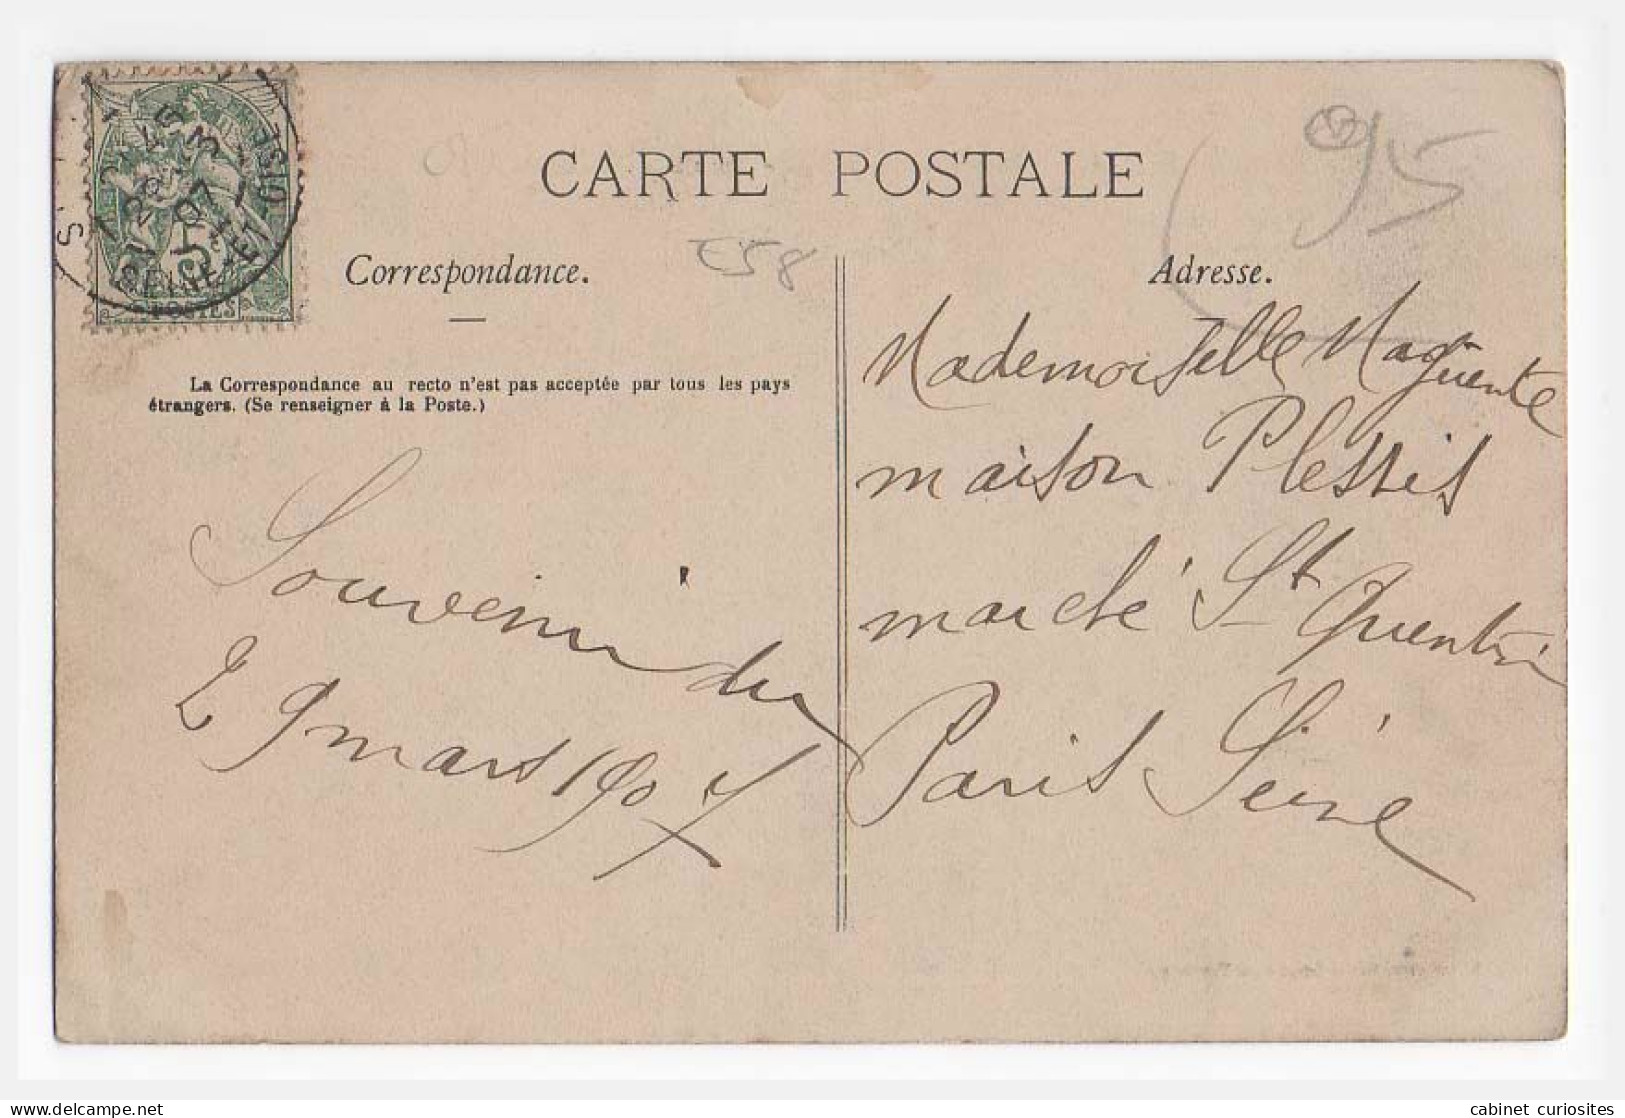 CARTE POSTALE
95
E58
Correspondance.
Adresse.
La Correspondance au recto n'est pas acceptée par tous les pays
étrangers. (Se renseigner à la Poste.)
Souvenir du
29 mars 1907
Mademoiselle
maison Plessis
marché St Quentin
Paris Seine
28
3
07
SEINE-ET-OISE
5
POSTES
cabinet curiosites